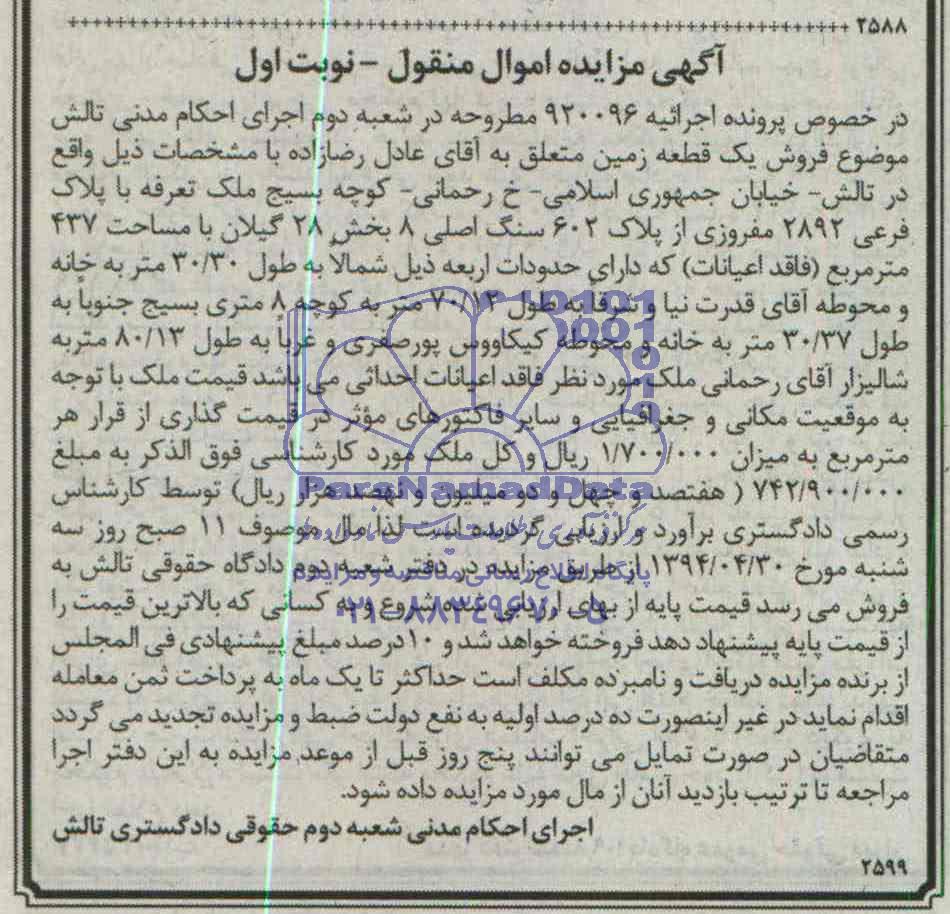 ۲۵۸۸
آگهی مزایده اموال منقول - نوبت اول
در خصوص پرونده اجرائیه ۹۲۰۰۹۶ مطروحه در شعبه دوم اجرای احکام مدنی تالش
موضوع فروش یک قطعه زمین متعلق به آقای عادل رضازاده با مشخصات ذیل واقع
در تالش- خیابان جمهوری اسلامی- خ رحمانی- کوچه بسیج ملک تعرفه با پلاک
فرعی ۲۸۹۲ مفروزی از پلاک ۶۰۲ سنگ اصلی ۸ بخش ۲۸ گیلان با مساحت ۴۳۷
مترمربع (فاقد اعیانات) که دارای حدودات اربعه ذیل شمالاً به طول ۳۰/۳۰ متر به خانه
و محوطه آقای قدرت نیا و شرقاً به طول ۷۰/۱۳ متر به کوچه ۸ متری بسیج جنوباً به
طول ۳۰/۳۷ متر به خانه و محوطه کیکاووس پورصفری و غرباً به طول ۸۰/۱۳ متربه
شالیزار آقای رحمانی ملک مورد نظر فاقد اعیانات احداثی می باشد قیمت ملک با توجه
به موقعیت مکانی و جغرافیایی و سایر فاکتورهای مؤثر در قیمت گذاری از قرار هر
مترمربع به میزان ۱/۷۰۰/۰۰۰ ریال و کل ملک مورد کارشناسی فوق الذکر به مبلغ
۷۴۲/۹۰۰/۰۰۰ ( هفتصد و چهل و دو میلیون و نهصد هزار ریال) توسط کارشناس
رسمی دادگستری برآورد و ارزیابی گردیده است لذا مال موصوف ۱۱ صبح روز سه
شنبه مورخ ۱۳۹۴/۰۴/۳۰ از طریق مزایده در دفتر شعبه دوم دادگاه حقوقی تالش به
فروش می رسد قیمت پایه از بهای ارزیابی شده شروع و به کسانی که بالاترین قیمت را
از قیمت پایه پیشنهاد دهد فروخته خواهد شد و ۱۰درصد مبلغ پیشنهادی فی المجلس
از برنده مزایده دریافت و نامبرده مکلف است حداکثر تا یک ماه به پرداخت ثمن معامله
اقدام نماید در غیر اینصورت ده درصد اولیه به نفع دولت ضبط و مزایده تجدید می گردد
متقاضیان در صورت تمایل می توانند پنج روز قبل از موعد مزایده به این دفتر اجرا
مراجعه تا ترتیب بازدید آنان از مال مورد مزایده داده شود.
اجرای احکام مدنی شعبه دوم حقوقی دادگستری تالش
۲۵۹۹
ParsNamadData
پایگاه اطلاع رسانی مناقصه و مزایده